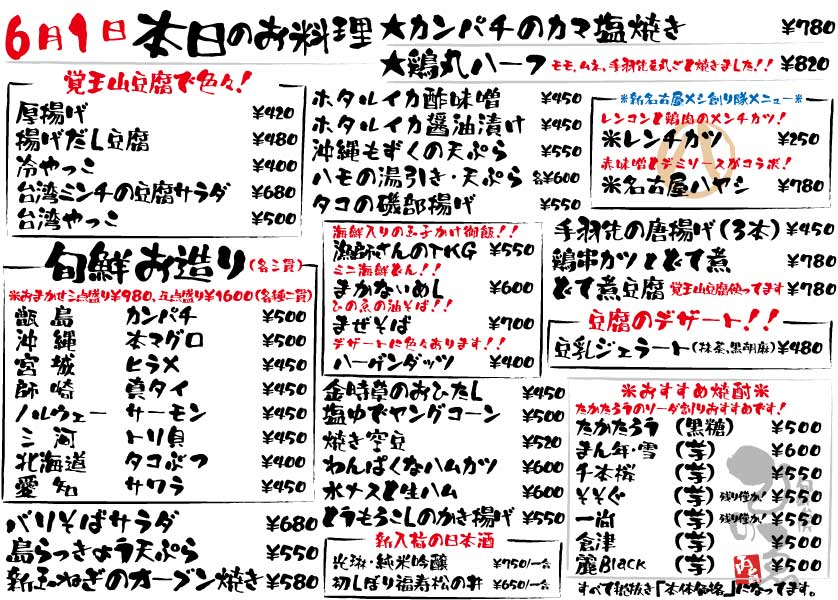 6月9日 本日のお料理
★カンパチのカマ塩焼き ¥780
★鶏丸ハーフ モモ、ムネ、手羽先を丸ごと焼きました!! ¥820
覚王山豆腐で色々!
厚揚げ ¥420
揚げだし豆腐 ¥480
冷やっこ ¥400
台湾ミンチの豆腐サラダ ¥680
台湾やっこ ¥500
旬鮮お造り(名二貫)
※おまかせ三点盛り¥980、五点盛り¥1600(各種二貫)
甑島 カンパチ ¥500
沖縄 本マグロ ¥500
宮城 ヒラメ ¥450
師崎 真タイ ¥450
ノルウェー サーモン ¥450
三河 トリ貝 ¥450
北海道 タコぶつ ¥400
愛知 サワラ ¥450
バリそばサラダ ¥680
島らっきょう天ぷら ¥550
新玉ねぎのオーブン焼き ¥580
ホタルイカ酢味噌 ¥450
ホタルイカ醤油漬け ¥450
沖縄もずくの天ぷら ¥550
ハモの湯引き・天ぷら 各¥600
タコの磯部揚げ ¥550
海鮮入りの玉子かけ御飯!!
漁師さんのTKG ¥550
ミニ海鮮どん!!
まかないめし ¥600
ひの鳥の油そば!!
まぜそば ¥700
デザートに色々あります!!
ハーゲンダッツ ¥400
金時草のおひたし ¥450
塩ゆでヤングコーン ¥500
焼き空豆 ¥520
わんぱくなハムカツ ¥500
水ナスと生ハム ¥600
とうもろこしのかき揚げ ¥550
新入荷の日本酒
光琳・純米吟醸 ¥750/一合
初しぼり福寿松の井 ¥650/一合
※新名古屋メシ創り隊メニュー※
レンコンと鶏肉のメンチカツ!
※レンチカツ ¥250
赤味噌とデミソースがコラボ!
※名古屋ハヤシ ¥780
手羽先の唐揚げ(3本) ¥450
鶏串カツとどて煮 ¥780
どて煮豆腐 覚王山豆腐使ってます ¥780
豆腐のデザート!!
豆乳ジェラート(抹茶、黒胡麻) ¥480
※おすすめ焼酎※
たかたろうのソーダ割りおすすめです!
たかたろう (黒糖) ¥500
まん年・雪 (芋) ¥600
千本桜 (芋) ¥550
そそぐ (芋) 残り僅か! ¥550
一尚 (芋) 残り僅か! ¥550
倉津 (芋) ¥500
麗Black (芋) ¥500
すべて税抜き「本体価格」になってます。